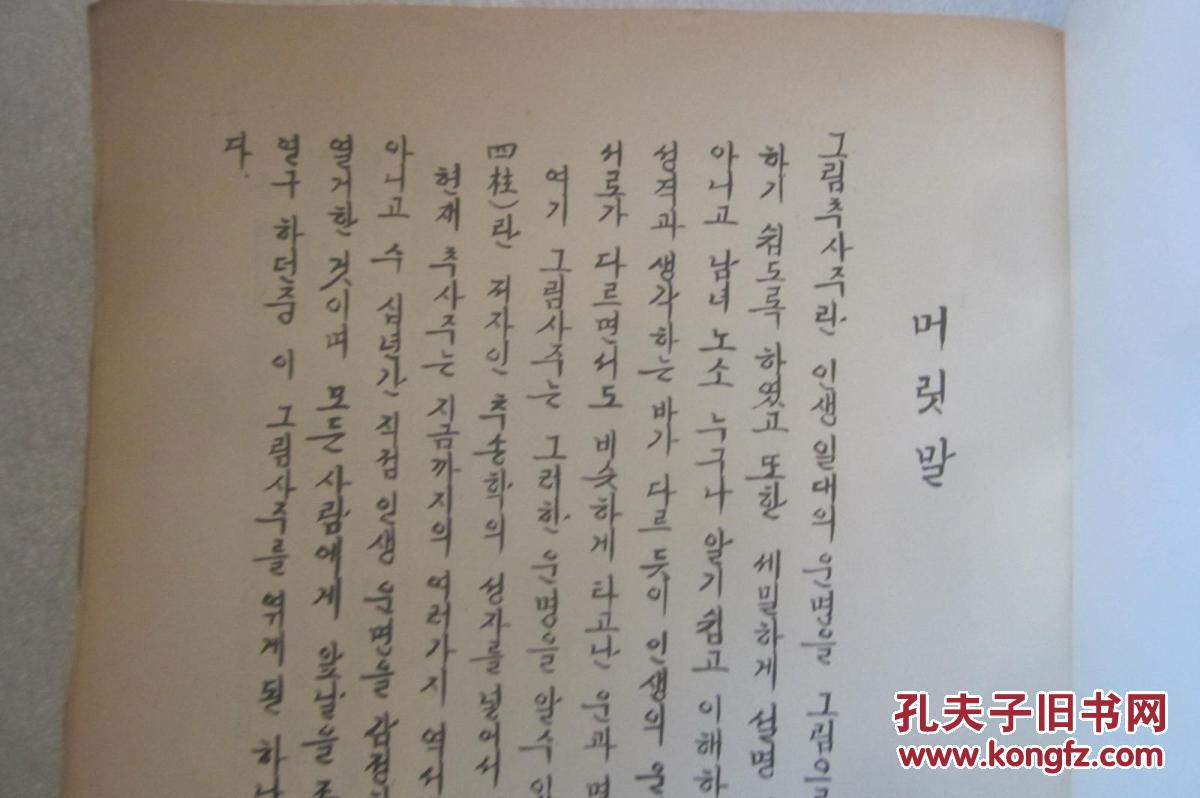 머릿말
그림추사주란 인생일대의 운명을 그림
하기 쉽도록 하였고 또한 세밀하게 설명
아니고 남녀노소 누구나 알기 쉽고 이해하
성격과 생각하는 바가 다르듯이 인생의
서로가 다르면서도 비슷하게 타고난 운과
여기 그림사주는 그러한 운명을 알수
四柱)란 저자인 추송학의 성자를 따와서
현재 추사주는 지금까지의 여러가지 역서
아니고 수 십년간 직접 인생 운명을
열거한 것이며 모든 사람에게 앞날을
연구 하던중 이 그림사주를 엮게된
다.
孔夫子旧书网
www.kongfz.com